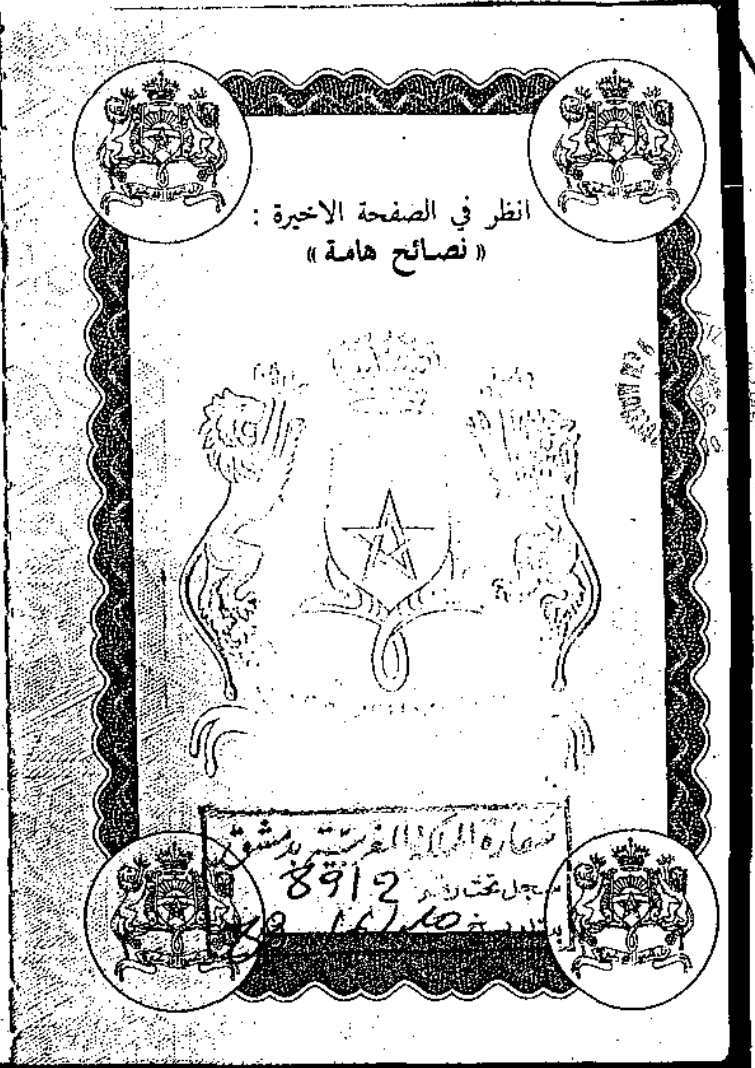 انظر في الصفحة الاخيرة :
« نصائح هامة »
سفارة المملكة المغربية بدمشق
سجل تحت رقم 8912
بتاريخ